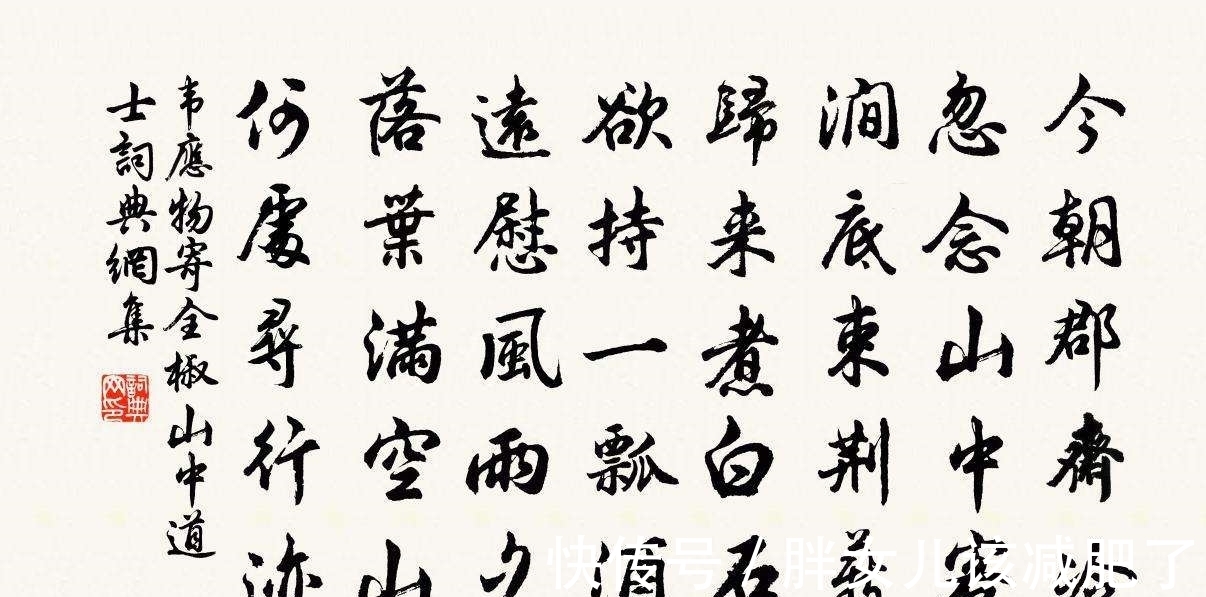 今朝郡齋冷
忽念山中客
澗底束荆薪
歸来煮白石
欲持一瓢酒
遠慰風雨夕
落葉滿空山
何處尋行迹
韦應物寄全椒山中道
士詞典網集
詞典网印
快传号 / 胖女儿该减肥了